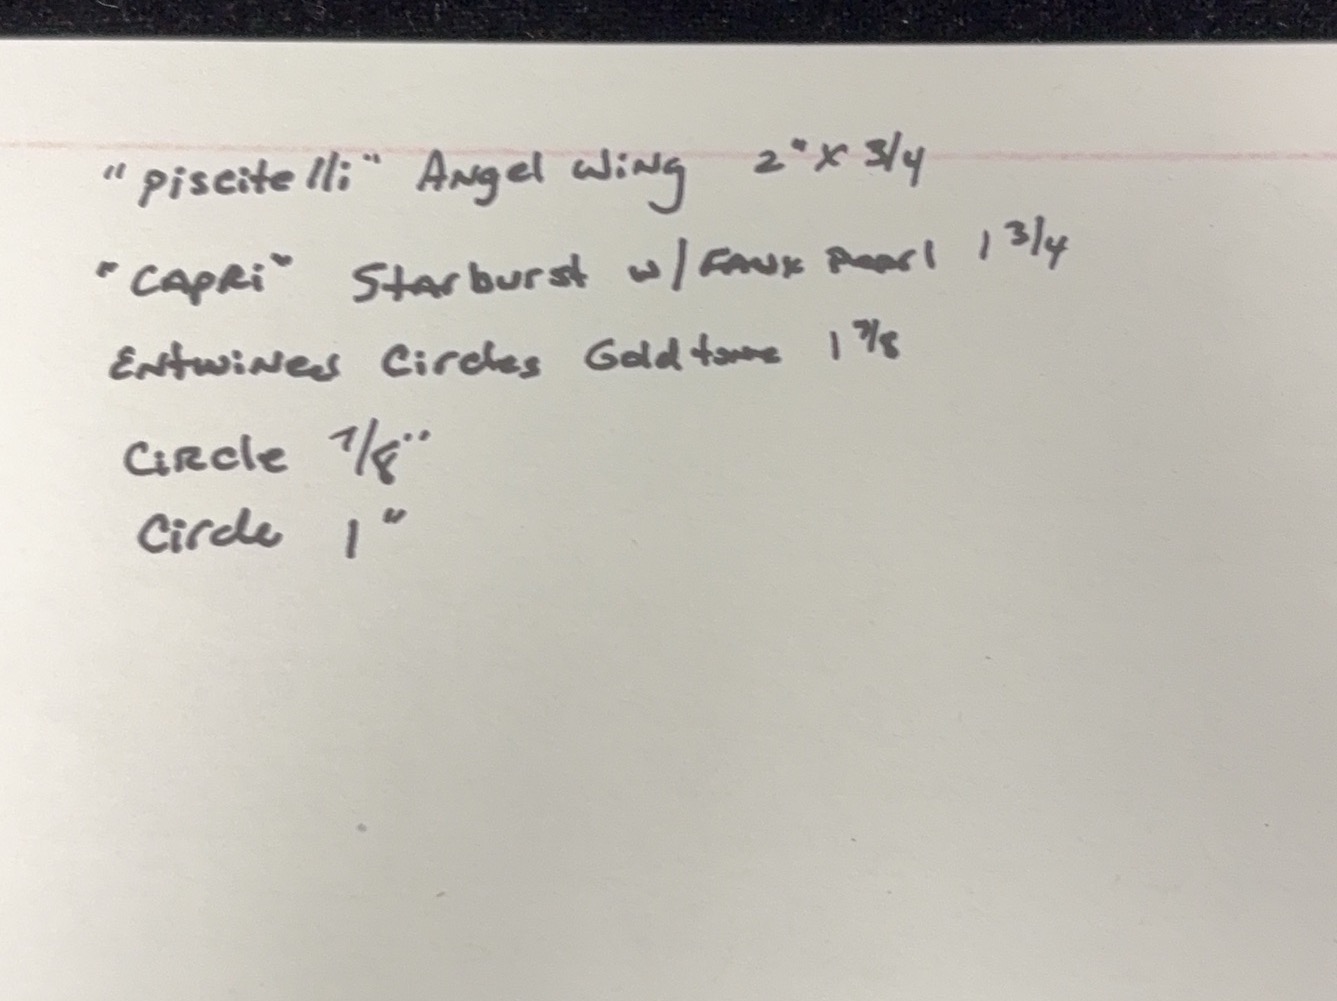 "Piscitelli" Angel Wing 2" x 3/4
"CAPRi" Starburst w/ Faux Pearl 1 3/4
Entwined Circles Goldtone 1 7/8
Circle 7/8"
Circle 1"